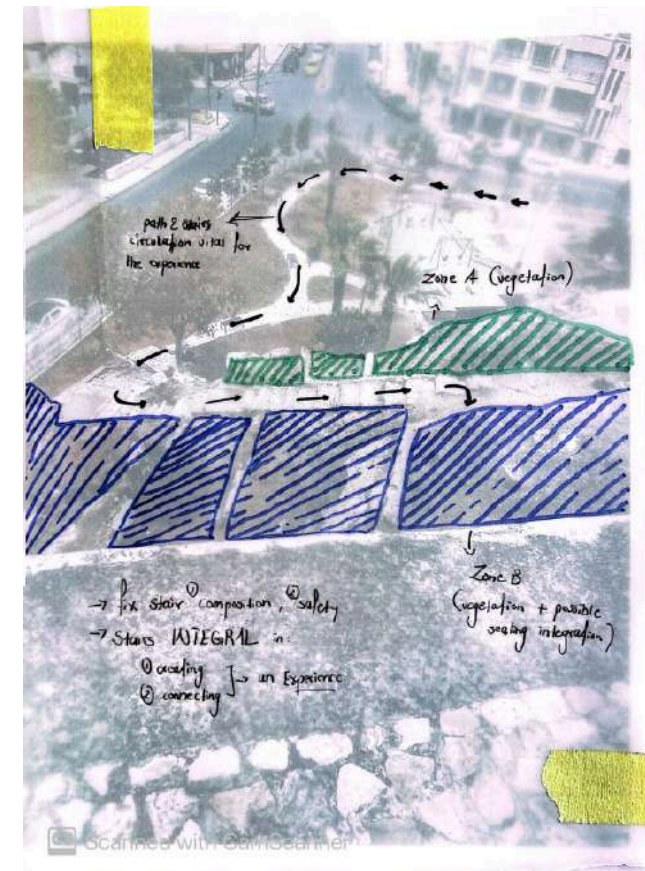 path & stairs
circulation vital for
the experience
Zone A (vegetation)
Zone B
(vegetation + possible
seating integration)
→ fix stair ① composition, ② safety
→ Stairs INTEGRAL in:
① creating
② connecting → an Experience
Scanned with CamScanner